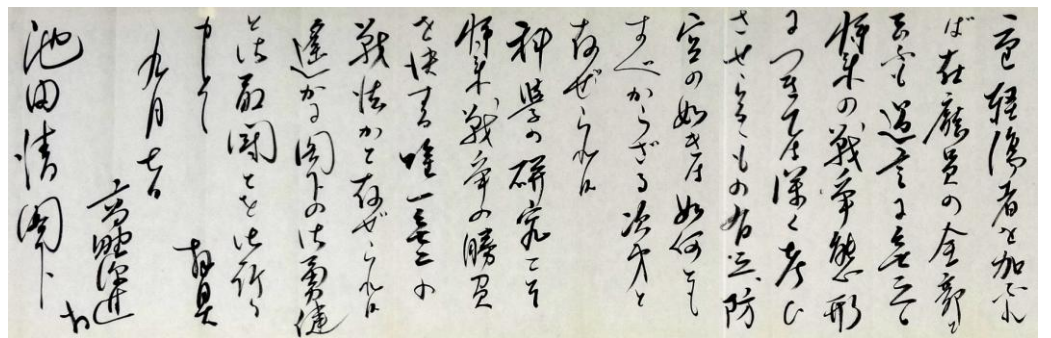 に軽傷者を加ふれ
ば在庁員の全部と
云ふも過言に無之
将来の戦争態形
につきては深く考ひ
させらるもの有之防
空の如きは如何とも
すべからざる次第と
存ぜられ候
科学の研究こそ
将来戦争の勝負
を決する唯一無二の
戦法かと存ぜられ候
遥かに閣下の御勇健
と御敢闘とを御祈り
申上候
敬具
九月七日
高野源進
池田清閣下